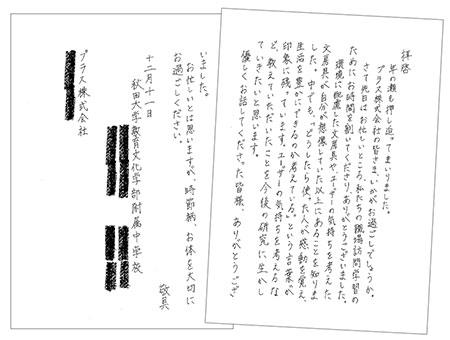 拝啓
年の瀬も押し迫ってまいりました。
プラス株式会社の皆さま、いかがお過ごしでしょうか。
さて先日はお忙しいところ、私たちの職場訪問学習の
ためにお時間を割いてくださり、ありがとうございました。
環境に配慮した文房具や、ユーザーの気持ちを考えた
文房具が自分が想像していた以上にあることを知りま
した。中でも、「どうしたら使った人が感動を覚え、
生活を豊かにできるのか考えている。」という言葉が
印象に残っています。ユーザーの気持ちを考えるな
ど、教えていただいたことを今後の研究に生かし
ていきたいと思います。
優しくお話してくださった皆様、ありがとうござ
いました。
お忙しいとは思いますが、時節柄、お体を大切に
お過ごしください。
敬具
十二月十一日
秋田大学教育文化学部附属中学校
プラス株式会社